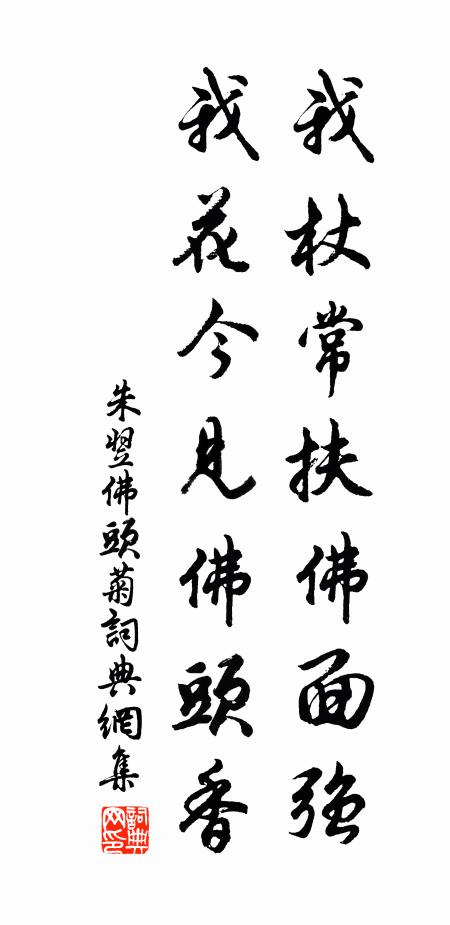 我杖常扶佛面強
我花今見佛頭香
朱翌佛頭菊詞典網集
詞典网印